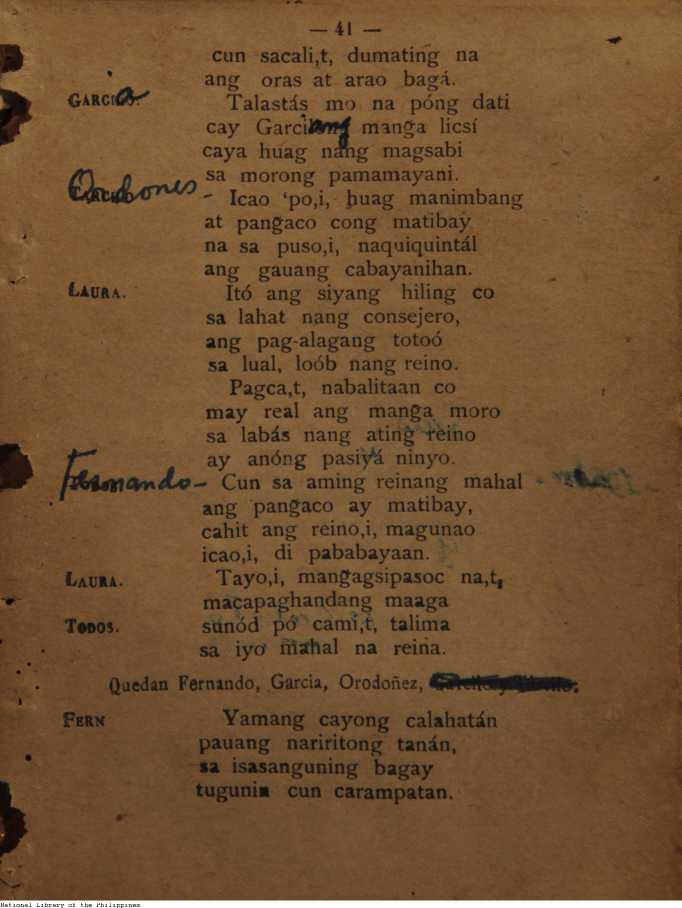 — 41 —
cun sacali,t, dumating na
ang oras at arao bagá.
GARCIA. Talastás mo na póng dati
cay Garciang mang̃a licsí
caya huag nang magsabi
sa morong pamamayani.
Ordoñes - Icao 'po,i, huag manimbang
at pang̃aco cong matibay
na sa puso,i, naquiquintál
ang gauang cabayanihan.
LAURA. Itó ang siyang hiling co
sa lahat nang consejero,
ang pag-alagang totoó
sa lual, loób nang reino.
Pagca,t, nabalitaan co
may real ang mang̃a moro
sa labás nang ating reino
ay anóng pasiyá ninyo.
Fernando - Cun sa aming reinang mahal
ang pang̃aco ay matibay,
cahit ang reino,i, magunao
icao,i, di pababayaan.
LAURA. Tayo,i, mang̃agsipasoc na,t,
macapaghandang maaga
TODOS. sunód pó cami,t, talima
sa iyo mahal na reina.
Quedan Fernando, Garcia, Orodoñez,
FERN Yamang cayong calahatán
pauang nariritong tanán,
sa isasanguning bagay
tugunin cun carampatan.
National Library of the Philippines